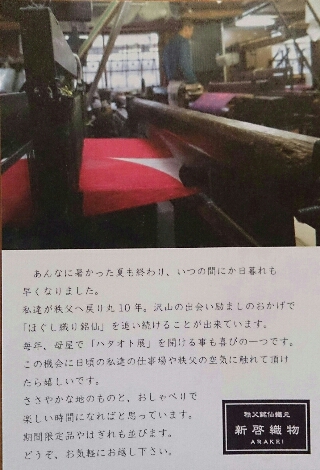 あんなに暑かった夏も終わり、いつの間にか日暮れも
早くなりました。
私達が秩父へ戻り丸10年。沢山の出会い励ましのおかげで
「ほぐし織り銘仙」を追い続けることが出来ています。
毎年、母屋で「ハタオト展」を開ける事も喜びの一つです。
この機会に日頃の私達の仕事場や秩父の空気に触れて頂け
たら嬉しいです。
ささやかな地のものと、おしゃべりで
楽しい時間になればと思っています。
期間限定品やはぎれも並びます。
どうぞ、お気軽にお越し下さい。
秩父銘仙織元
新啓織物
ARAKEI